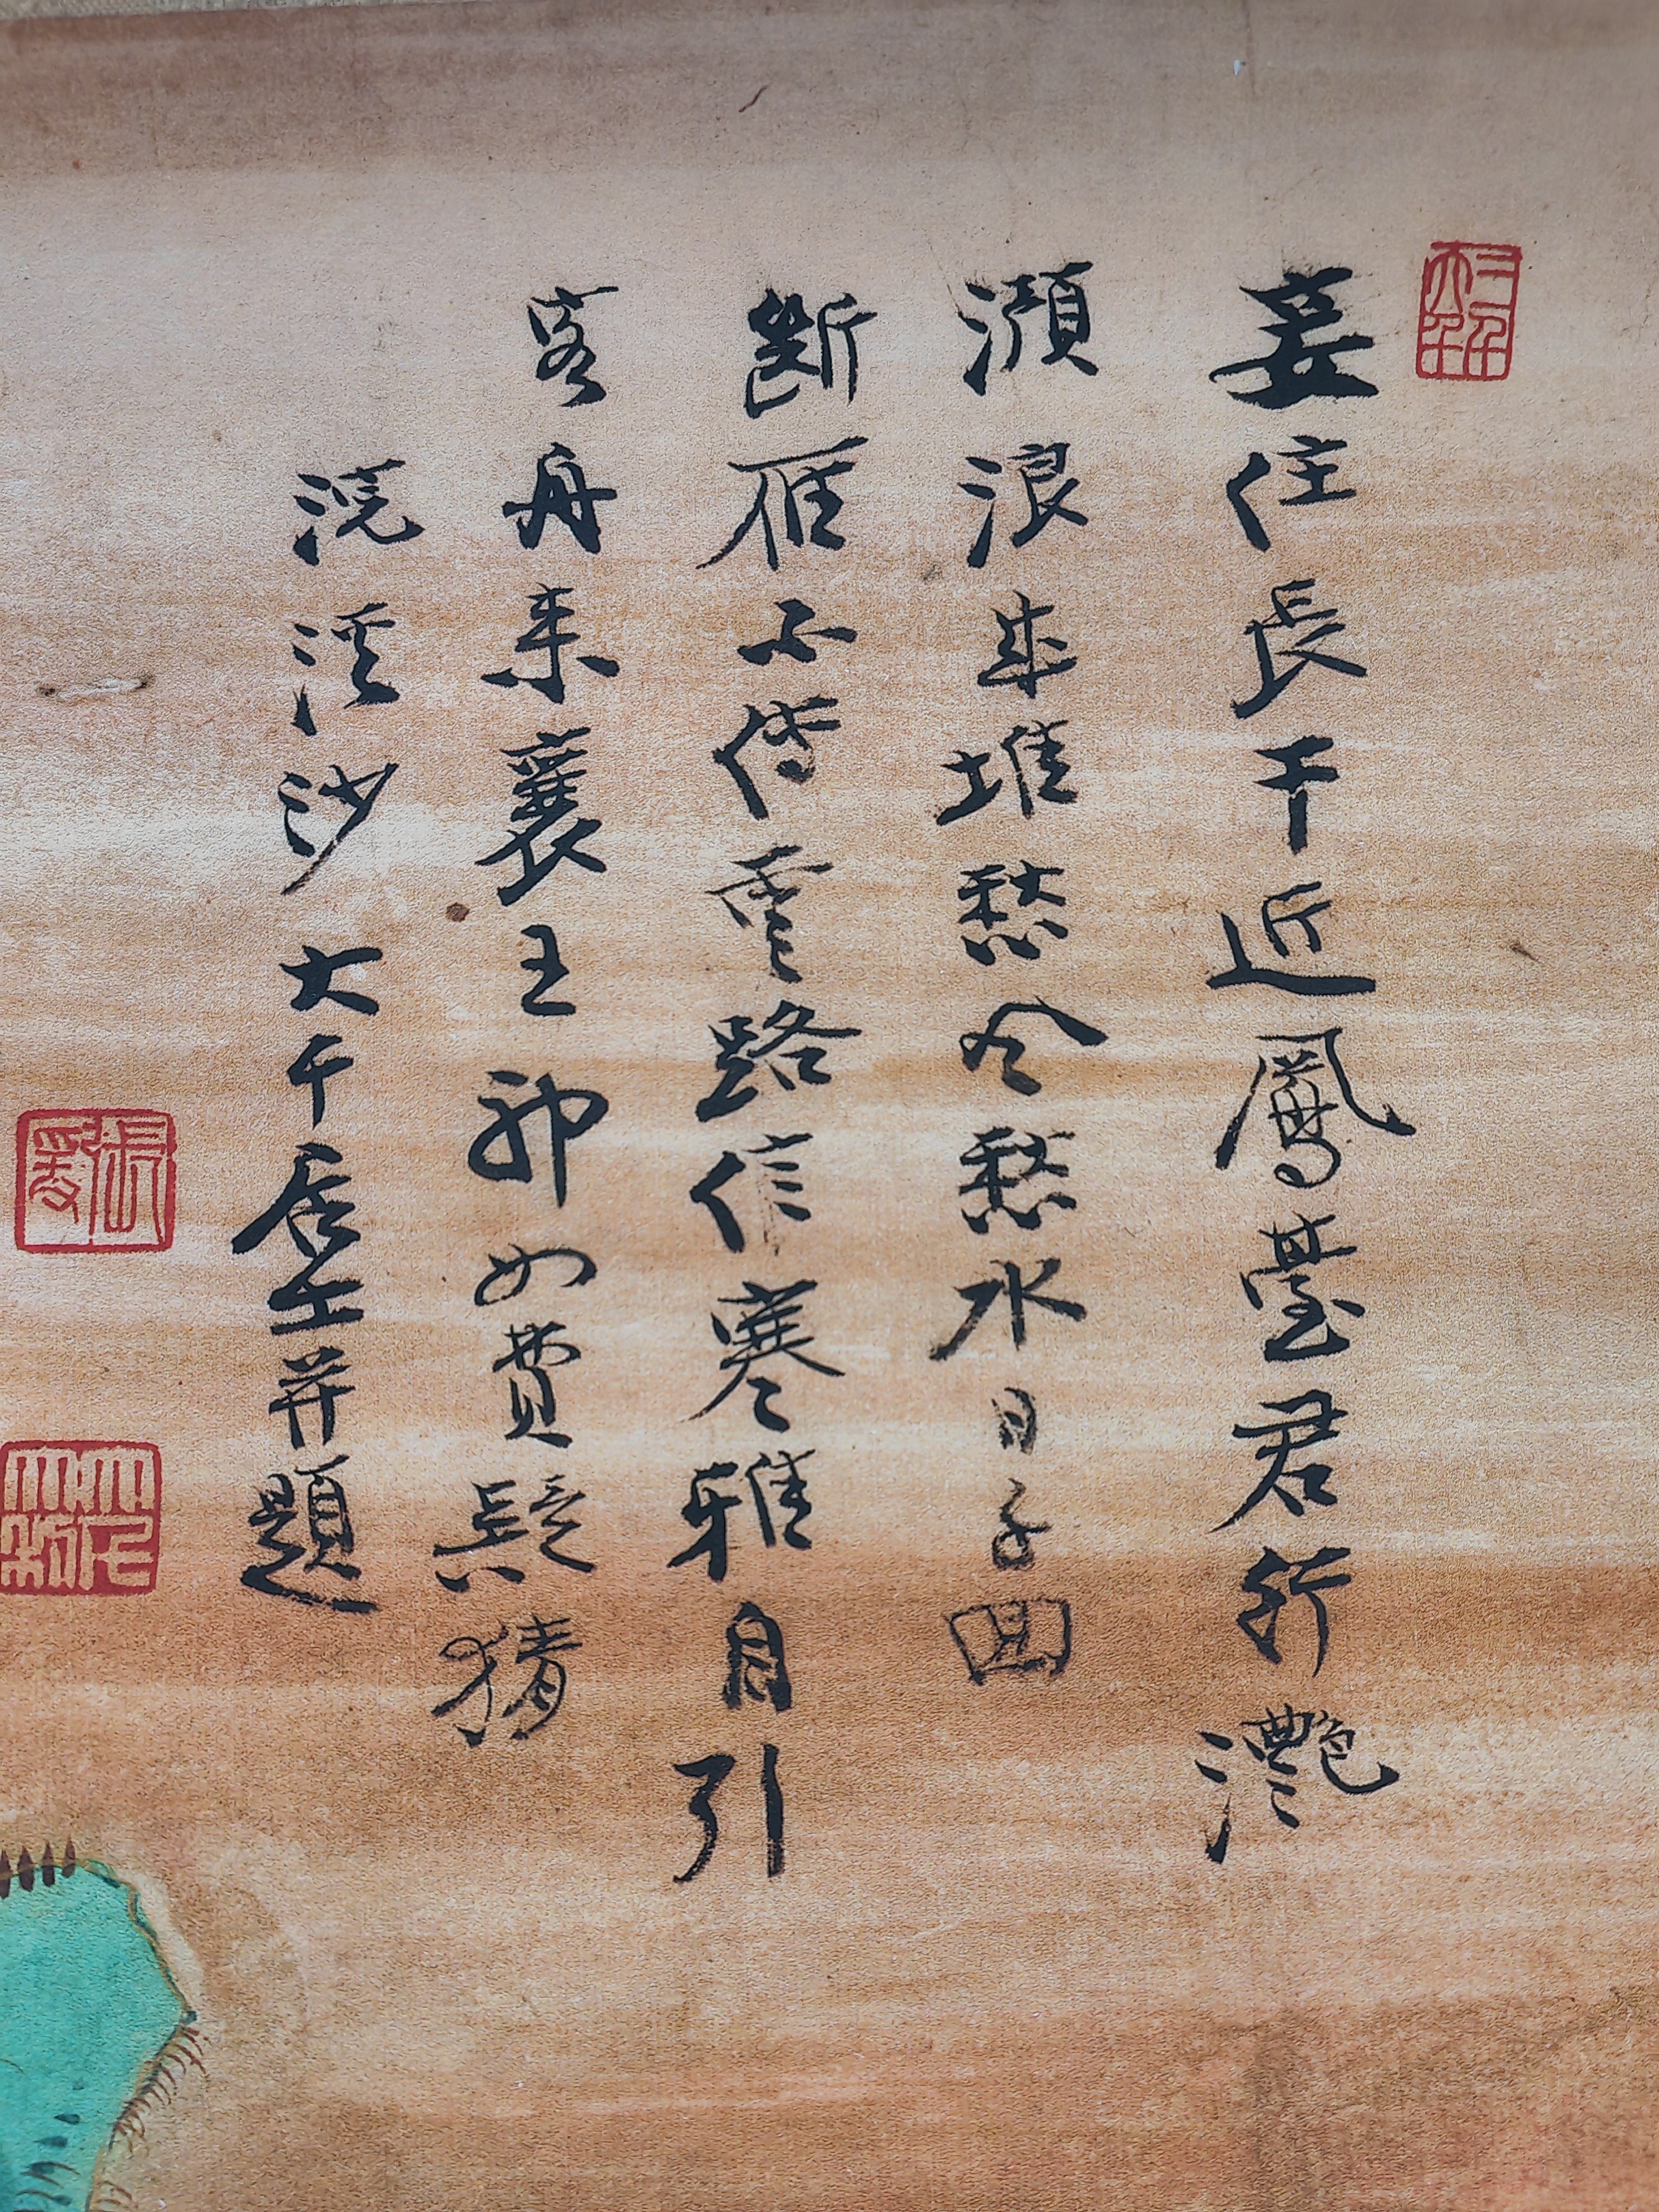 妾住長干近鳳臺君行灧
澦浪成堆愁風愁水日千回
斷雁不傳雲路信寒雅自引
客舟来襄王那如費疑猜
浣溪沙 大千居士并題
張爰